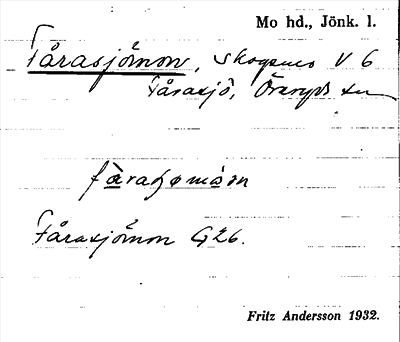 Mo hd., Jönk. l.
Fårasjömon, Skogsens V 6
Fårasjö, Öreryds sn
Fårasjömon G26.
Fritz Andersson 1932.